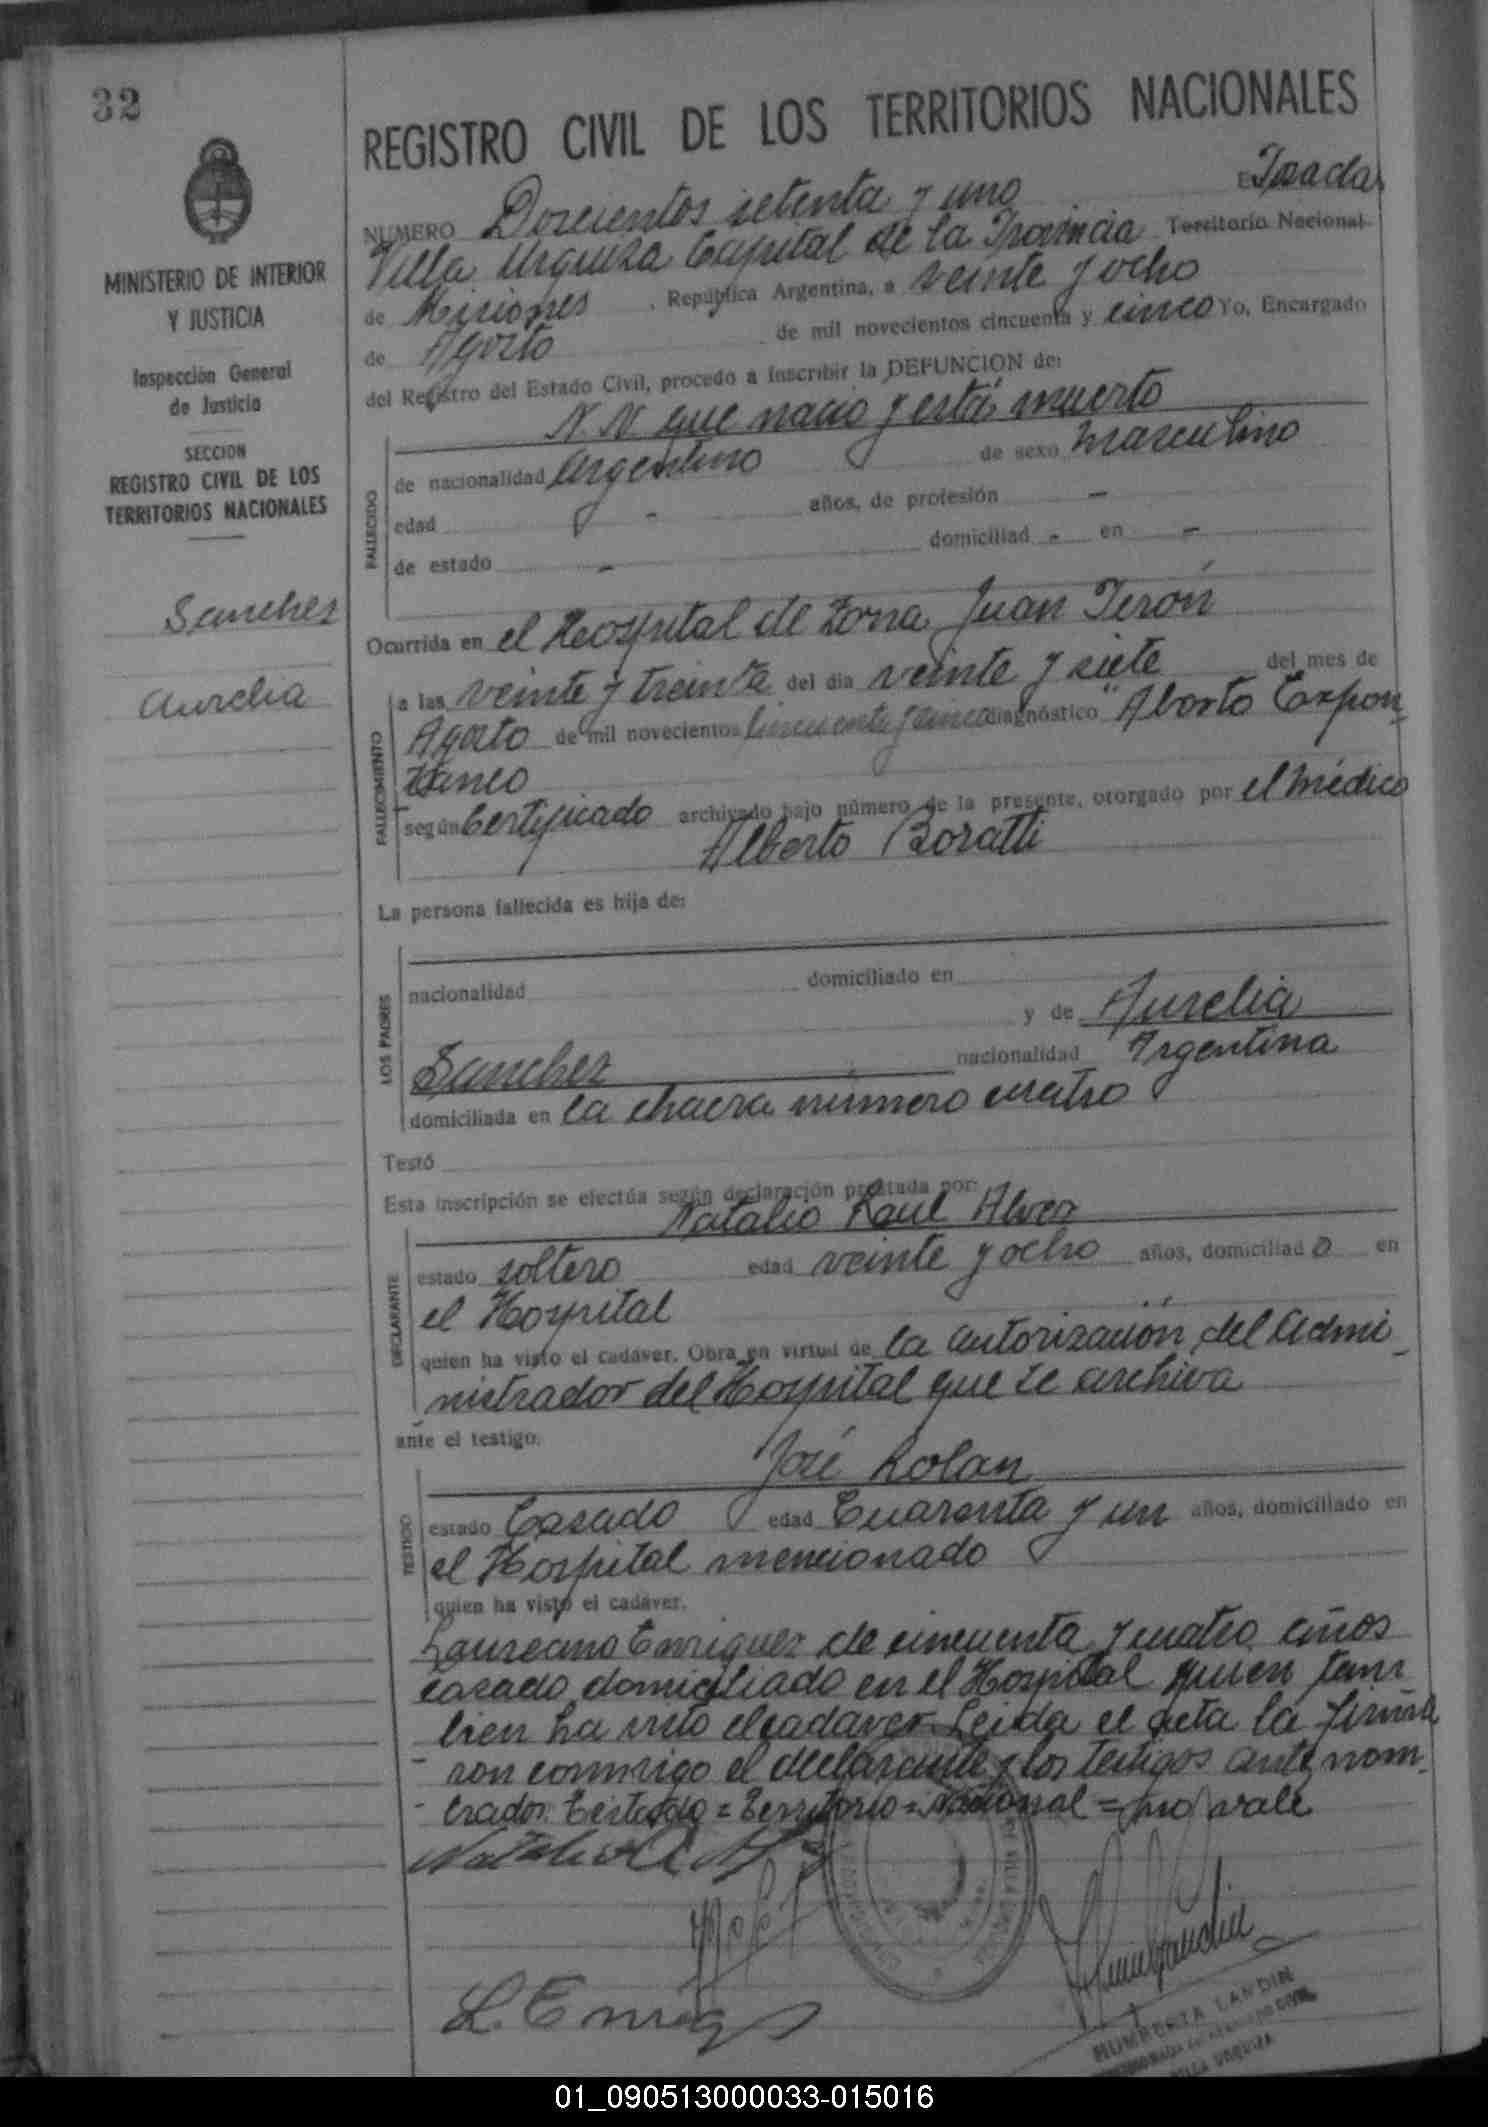 32
REGISTRO CIVIL DE LOS TERRITORIOS NACIONALES
MINISTERIO DE INTERIOR
Y JUSTICIA
Inspección General
de Justicia
SECCION
REGISTRO CIVIL DE LOS
TERRITORIOS NACIONALES
Sanchez
Aurelia
NUMERO Doscientos setenta y uno E Posadas
Villa Urquiza Capital de la Provincia Territorio Nacional
de Misiones , República Argentina, a veinte y ocho
de Agosto de mil novecientos cincuenta y cinco Yo, Encargado
del Registro del Estado Civil, procedo a inscribir la DEFUNCION de:
N N que nació y está muerto
FALLECIDO
de nacionalidad Argentino de sexo masculino
edad - años, de profesión -
de estado - domiciliad - en -
Ocurrida en el Hospital de Zona Juan Perón
FALLECIMIENTO
a las veinte y treinta del dia veinte y siete del mes de
Agosto de mil novecientos cincuenta y cinco diagnóstico "Aborto Expon-
táneo
según Certificado archivado bajo número de la presente, otorgado por el médico
Alberto Boratti
La persona fallecida es hija de:
LOS PADRES
nacionalidad domiciliado en
y de Aurelia
Sanchez nacionalidad Argentina
domiciliada en la chacra número cuatro
Testó
Esta inscripción se efectúa según declaración prestada por:
Natalio Raul Alvez
DECLARANTE
estado soltero edad veinte y ocho años, domiciliad o en
el Hospital
quien ha visto el cadáver. Obra en virtud de la autorización del Admi-
nistrador del Hospital que se archiva
ante el testigo:
José Lolan
TESTIGO
estado Casado edad Cuarenta y un años, domiciliado en
el Hospital mencionado
quien ha visto el cadáver.
Laureano Enriquez de cincuenta y cuatro años
casado domiciliado en el Hospital quien tam
bien ha visto el cadaver. Leida el acta la firma
- ron conmigo el declarante y los testigos ante nom-
- brados. Testado = Territorio = Nacional = no vale
L. Enriq
HUMBERTA LANDIN
VILLA URQUIZA
01_090513000033-015016